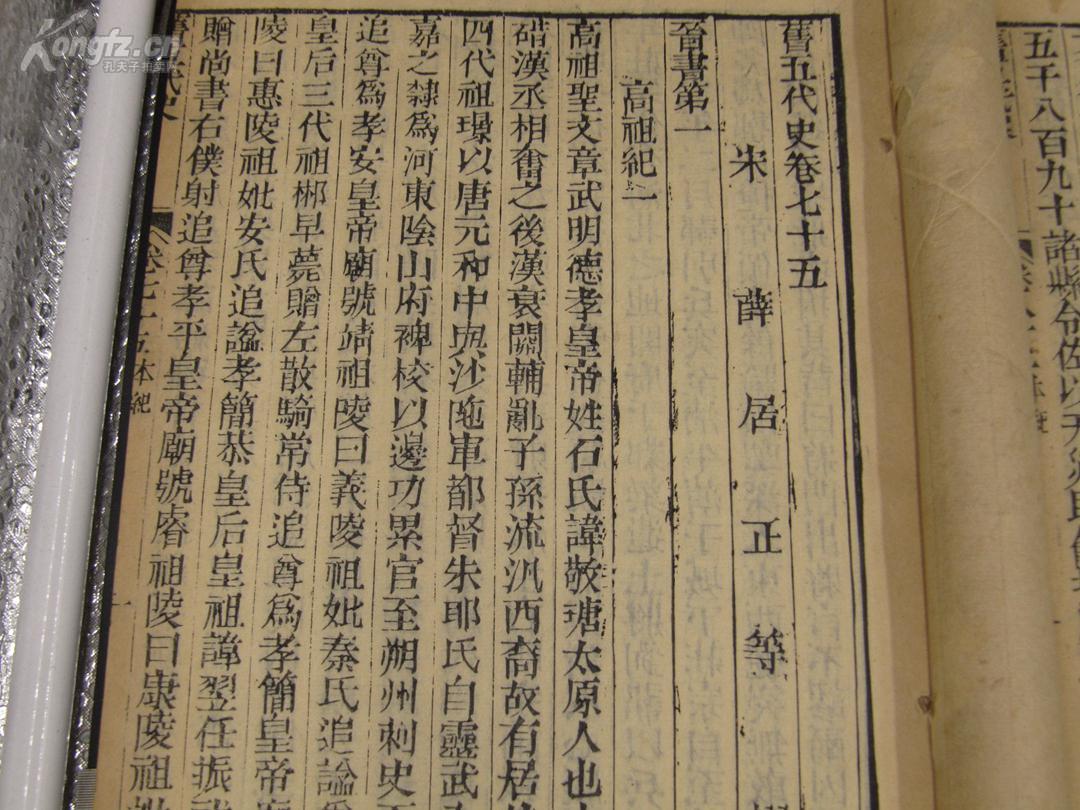 舊五代史卷七十五
宋 薛居正等
晉書第一
高祖紀一
高祖聖文章武明德孝皇帝姓石氏諱敬瑭太原人也
碏漢丞相奮之後漢衰關輔亂子孫流汎西裔故有居
四代祖璟以唐元和中與沙陁車都督朱耶氏自靈武
嘉之隸爲河東陰山府裨校以邊功累官至朔州刺史
追尊爲孝安皇帝廟號靖祖陵曰義陵祖妣秦氏追諡
皇后三代祖郴早薨贈左散騎常侍追尊爲孝簡皇帝
陵曰惠陵祖妣安氏追諡孝簡恭皇后皇祖諱翌任振
贈尚書右僕射追尊孝平皇帝廟號睿祖陵曰康陵祖
卷七十五本紀
五千八百九十諸縣令佐以
Kongfz.cn
孔夫子拍卖网